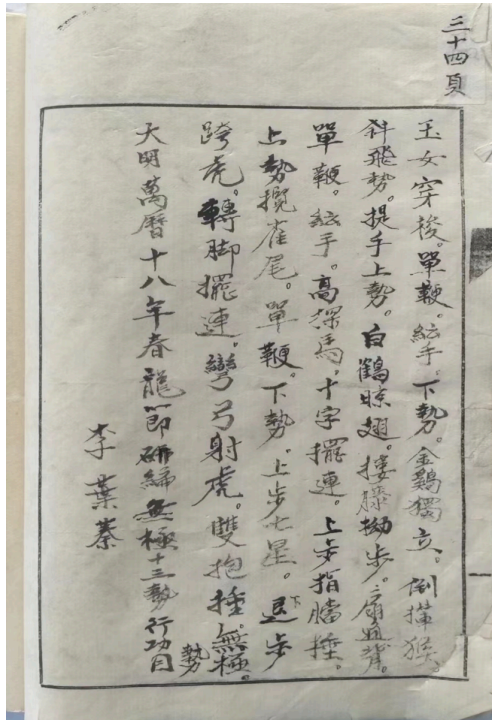 三十四頁
玉女穿梭。單鞭。紜手。下勢。金鷄獨立。倒攆猴。
斜飛勢。提手上勢。白鶴晾翅。摟膝拗步。三扇通背。
單鞭。紜手。高探馬。十字擺連。上步指膛捶。
上勢攬雀尾。單鞭。下勢。上步七星。下退步
跨虎。轉脚擺連。彎弓射虎。雙抱捶。無極勢。
大明萬曆十八年春龍節研編無極十三勢行功目
李葉蓁